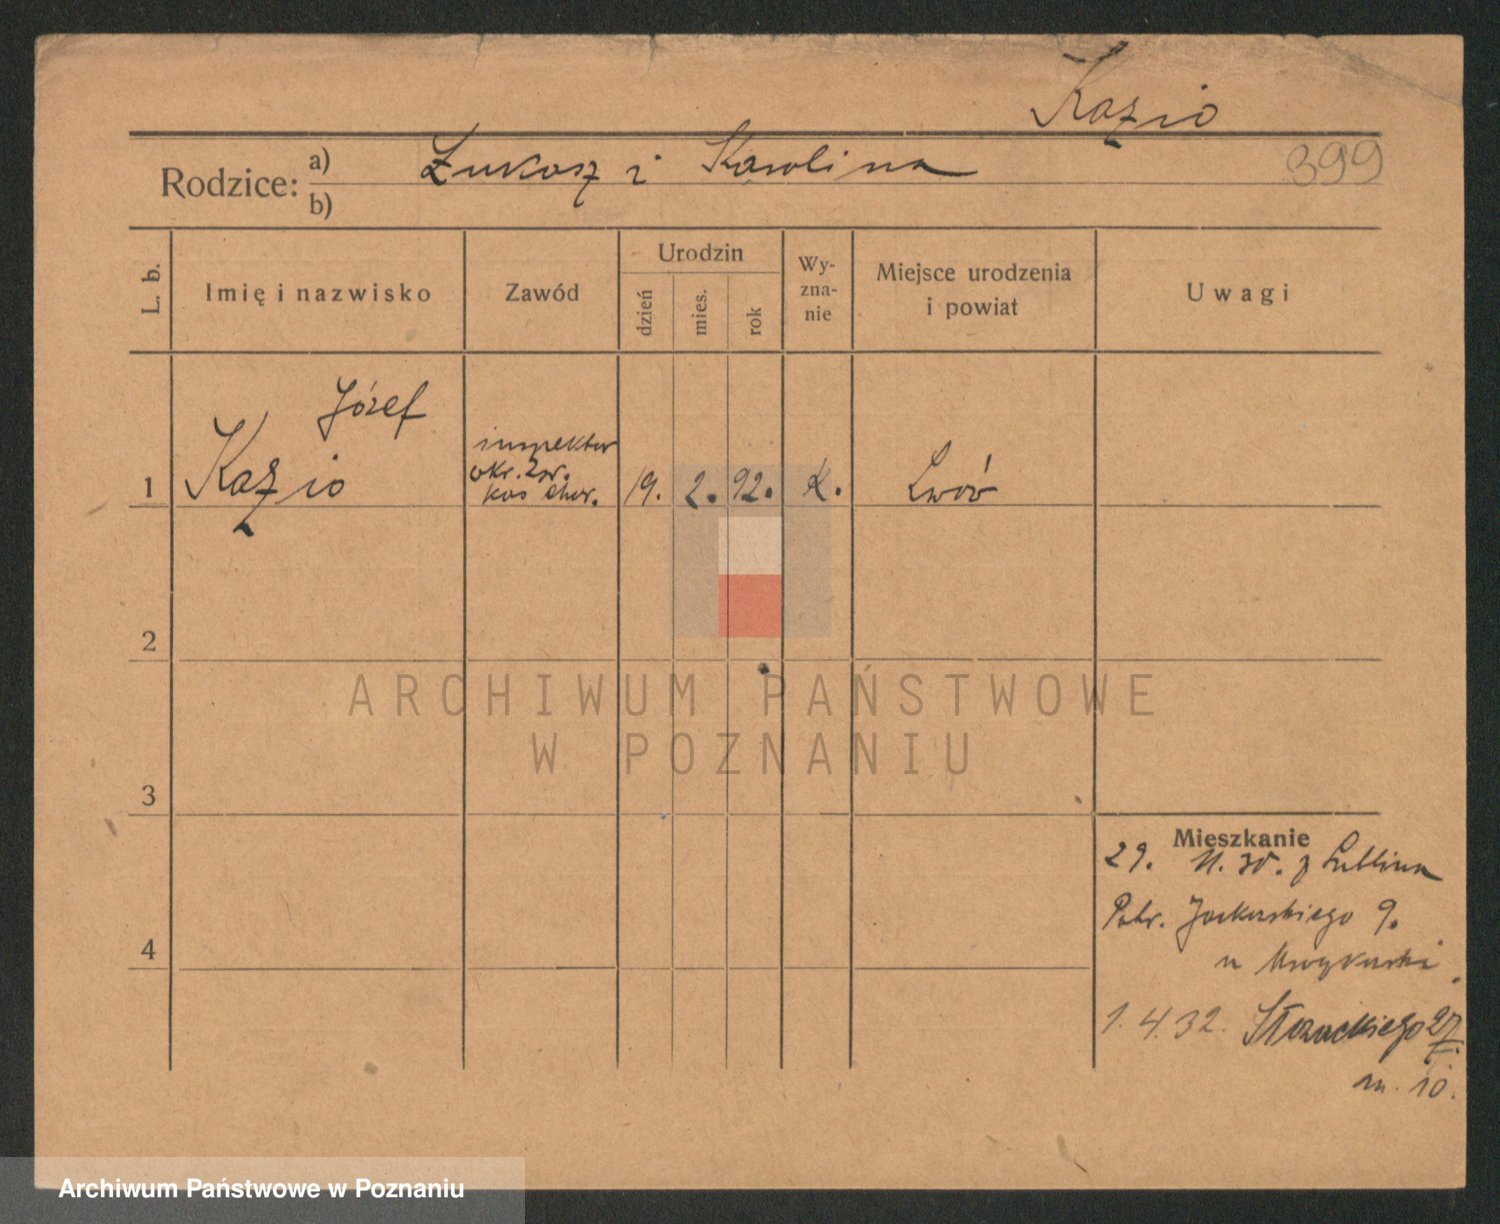 Kazio
Rodzice:
a) Łukasz i Karolina
399
b)
L. b.
Imię i nazwisko
Zawód
Urodzin
dzień
mies.
rok
Wy-
zna-
nie
Miejsce urodzenia
i powiat
Uwagi
Józef
1 Kazio
inspektor
okr. Zw.
kas chor.
19. 2. 92. k. Lwów
2
3
4
ARCHIWUM PAŃSTWOWE
W POZNANIU
Mieszkanie
29. 11. 30. z Lublina
9.
u
1.4.32. Słowackiego 27
m. 10.
Archiwum Państwowe w Poznaniu